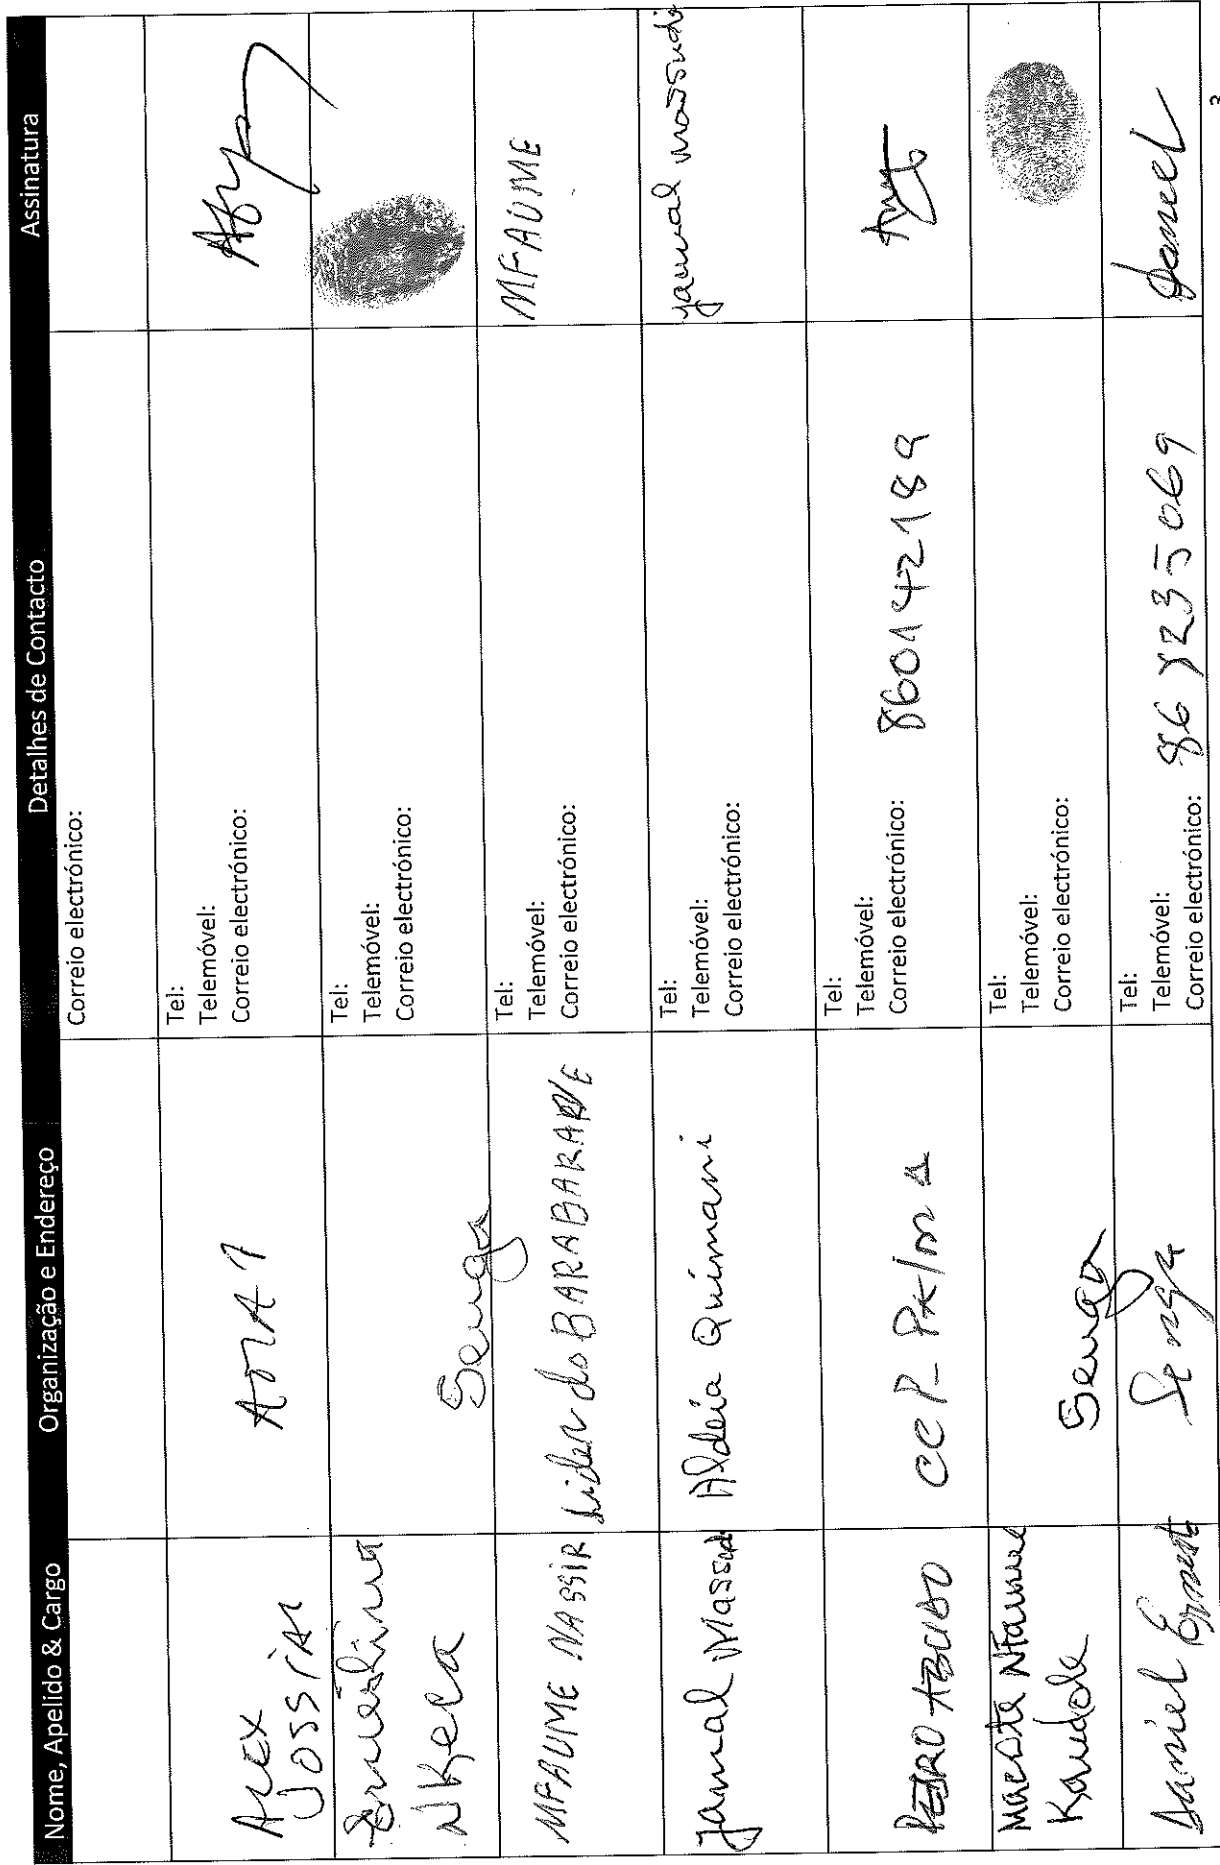 Nome, Apelido & Cargo Organização e Endereço Detalhes de Contacto Assinatura
Correio electrónico:
ALEX
JOSSIAS
AMA1
Tel:
Telemóvel:
Correio electrónico:
Ernestina
NKeca
Senga
Tel:
Telemóvel:
Correio electrónico:
MFAUME NASSIR
Lider do BARABARANE
Tel:
Telemóvel:
Correio electrónico:
MFAUME
Jamal Massudi
Aldeia Quimani
Tel:
Telemóvel:
Correio electrónico:
jamal massudi
PEDRO ABUDO
CCP-Palma
Tel:
Telemóvel:
Correio electrónico: 860142189
Macosta Nfaume
Kandole
Senga
Tel:
Telemóvel:
Correio electrónico:
Daniel Ernesto
Senga
Tel:
Telemóvel:
Correio electrónico: 868235069
Daniel
3